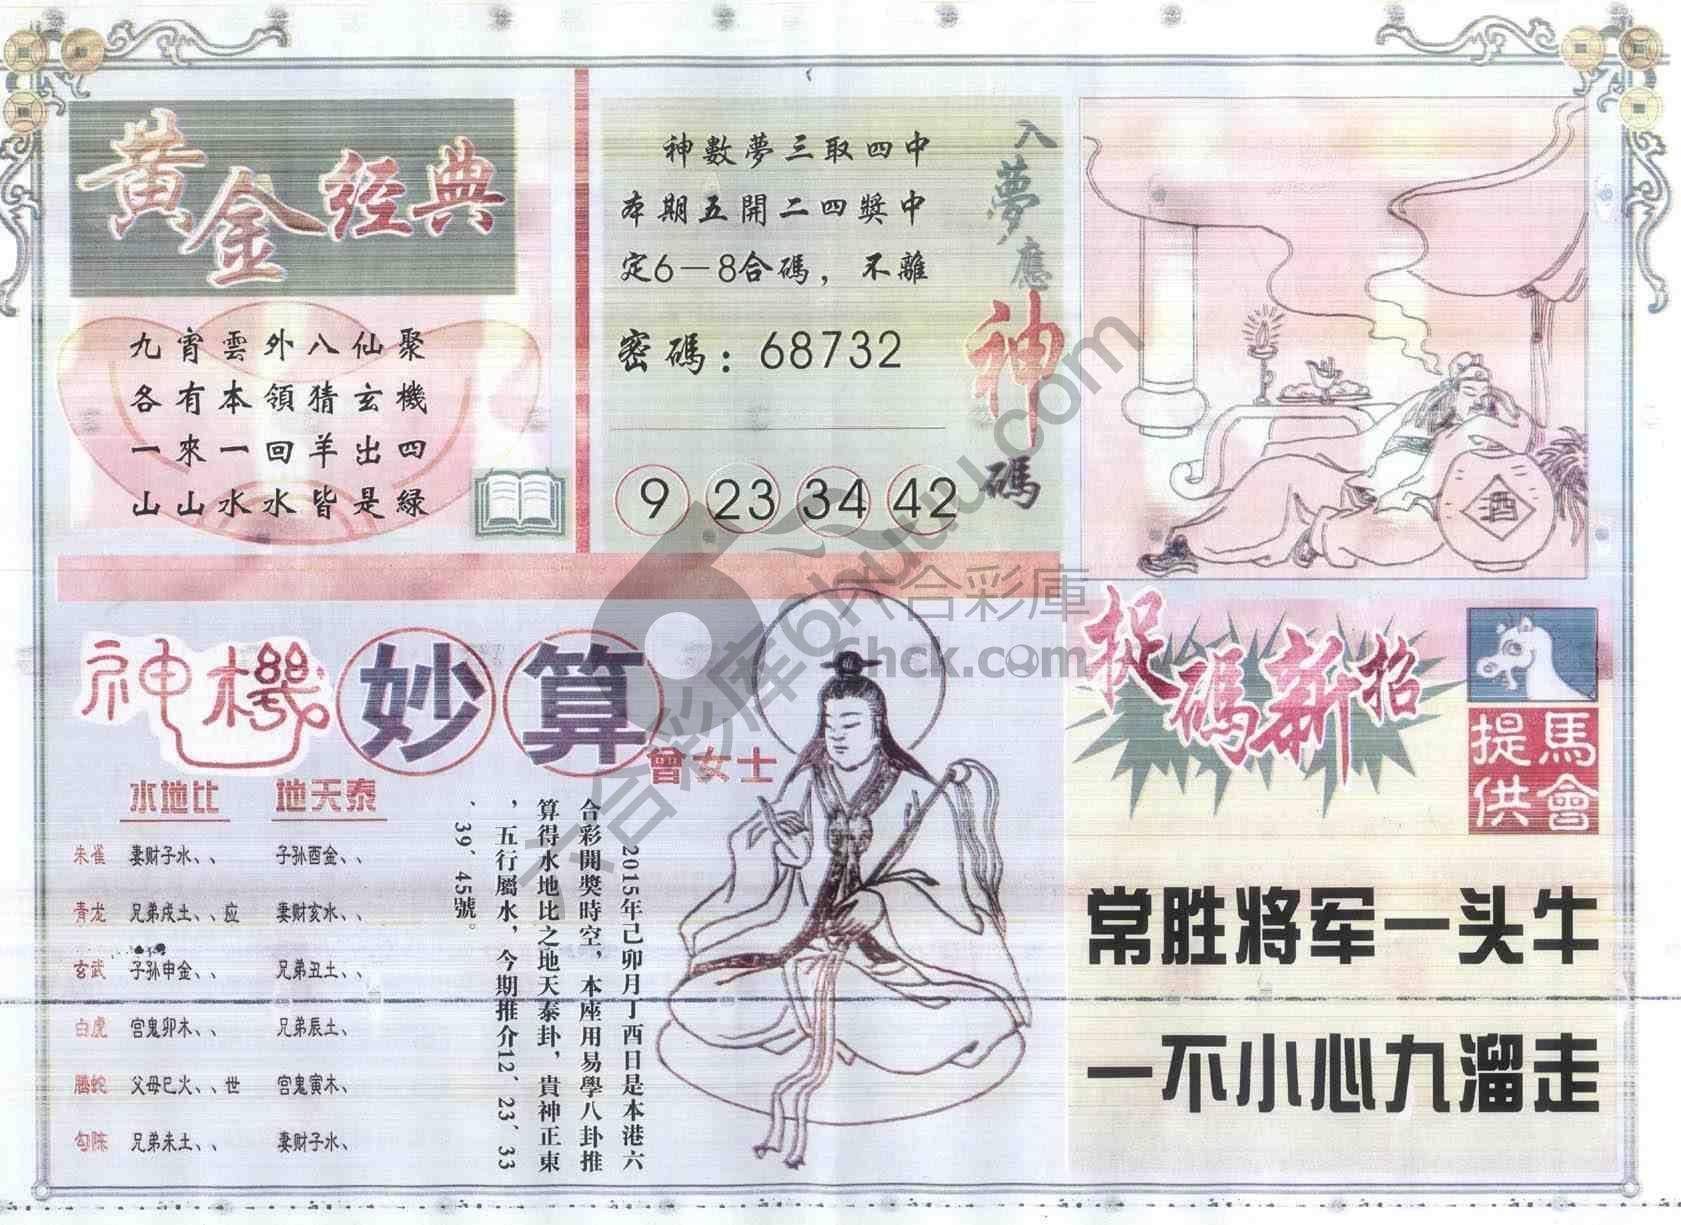 黄金经典
九宵雲外八仙聚
各有本領猜玄機
一來一回羊出四
山山水水皆是緑
神數夢三取四中
本期五開二四獎中
定6－8合碼，不離
密碼：68732
9 23 34 42
入夢應神碼
酒
神機妙算
曾女士
水地比 地天泰
朱雀 妻财子水、、 子孙酉金、、
青龙 兄弟戌土、、应 妻财亥水、、
玄武 子孙申金、、 兄弟丑土、、
白虎 宫鬼卯木、、 兄弟辰土、
腾蛇 父母巳火、、世 宫鬼寅木、
勾陈 兄弟未土、、 妻财子水、
2015年己卯月丁酉日是本港六
合彩開獎時空，本座用易學八卦推
算得水地比之地天泰卦，貴神正東
，五行屬水，今期推介12、23、33
、39、45號。
捉碼新招
馬會提供
常胜将军一头牛
一不小心九溜走
六合彩库6htuku.com
六合彩庫
6hck.com